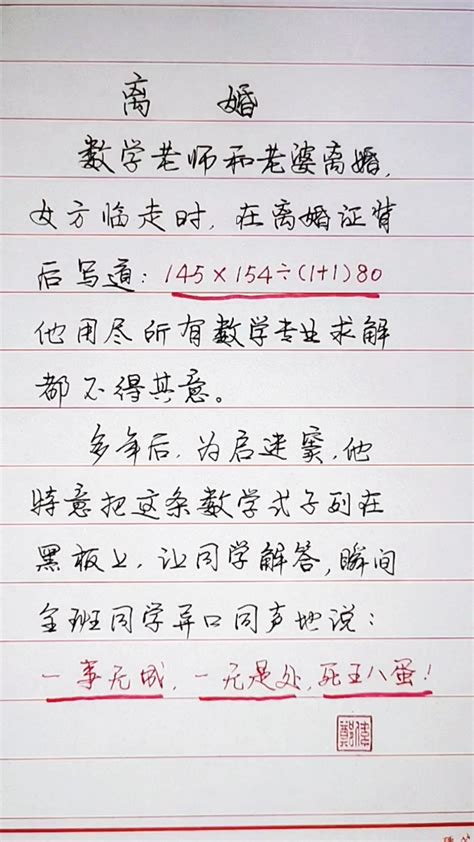 离 婚
数学老师和老婆离婚,
女方临走时,在离婚证背
后写道:145×154÷(1+1)80
他用尽所有数学专业求解
都不得其意。
多年后,为启迷窦,他
特意把这条数学式子列在
黑板上,让同学解答,瞬间
全班同学异口同声地说:
一事无成,一无是处,死王八蛋!